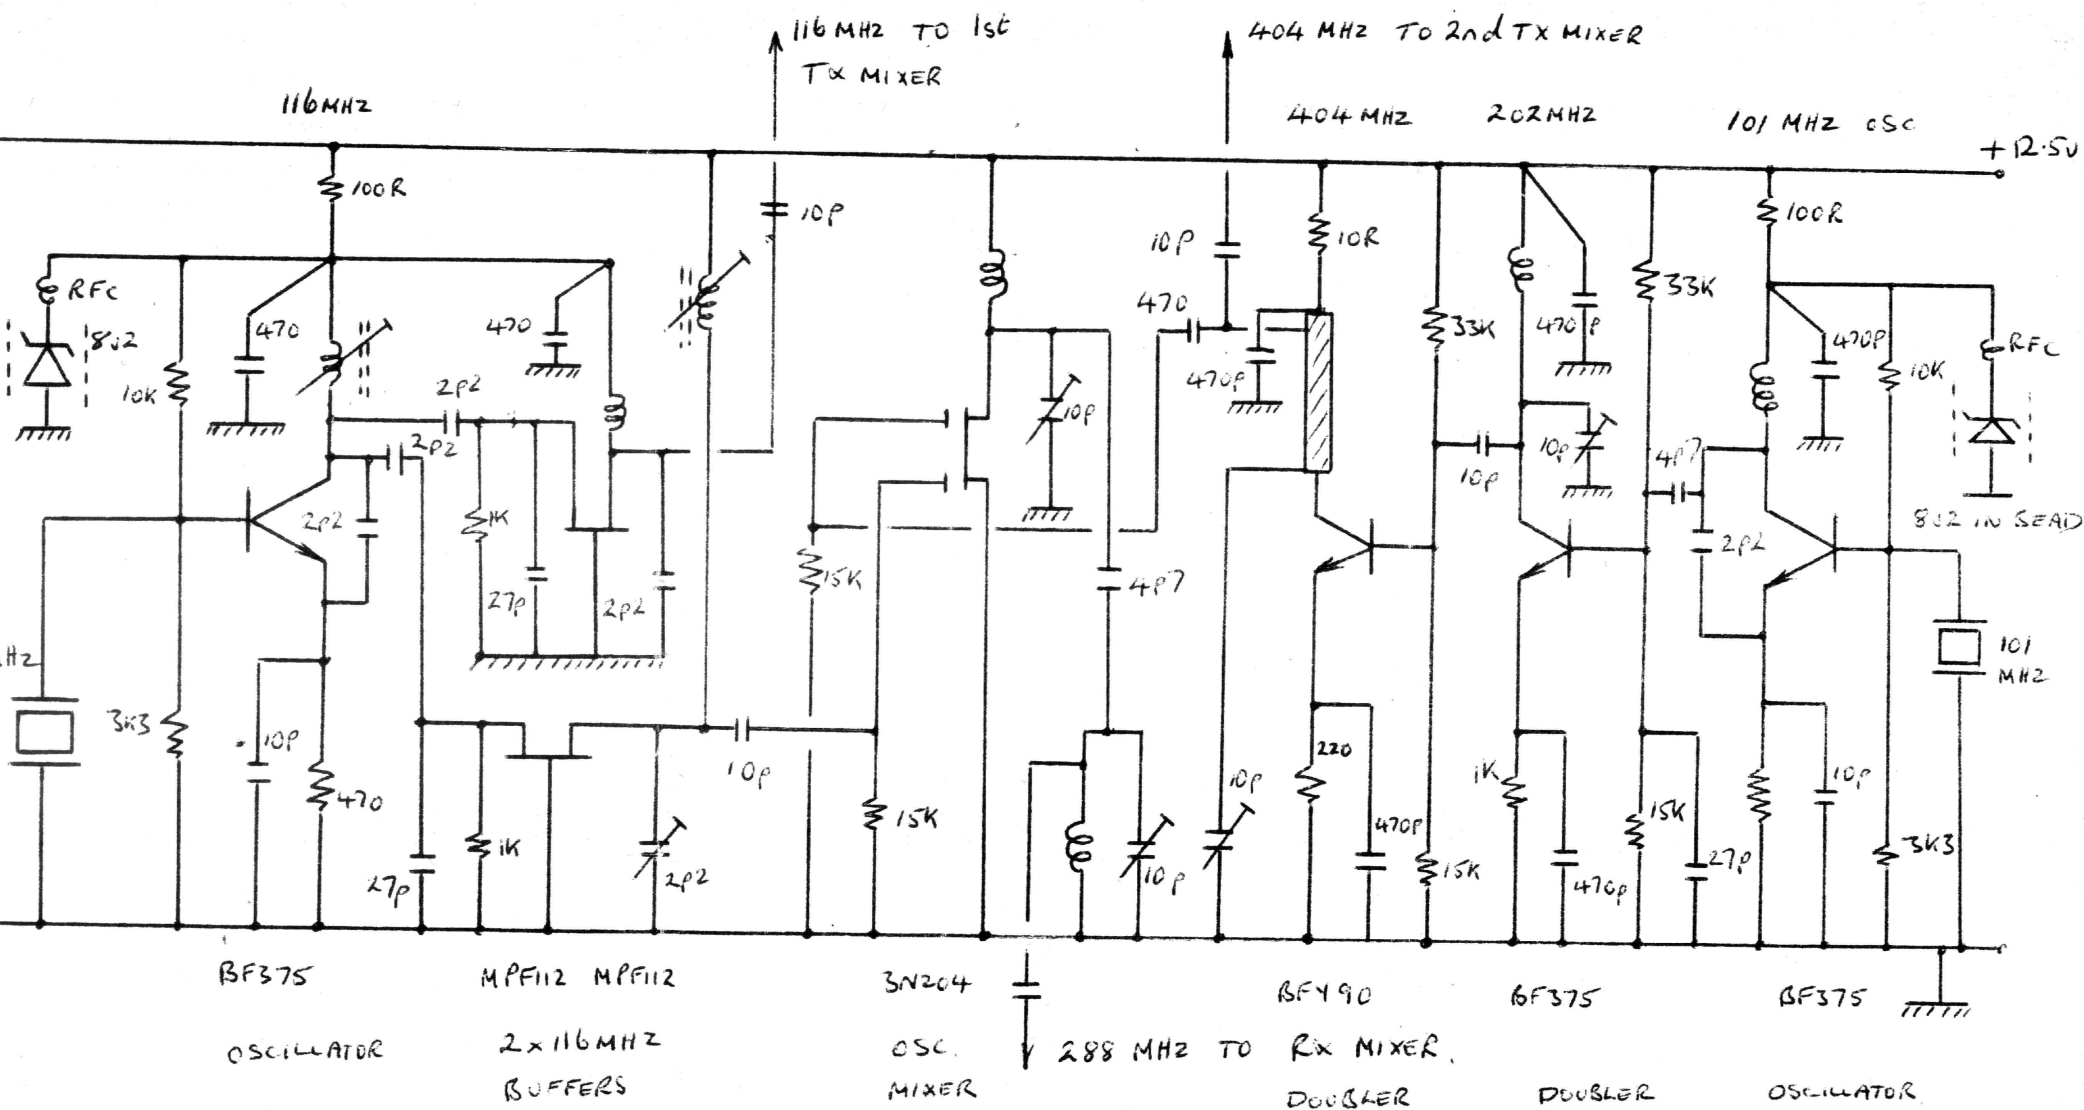 116 MHZ TO 1st
TX MIXER
404 MHZ TO 2nd TX MIXER
116MHZ
404 MHZ
202MHZ
101 MHZ OSC
+12.5v
100R
10P
10P
10R
100R
RFC
8v2
470
470
470
33K
470P
33K
470P
RFC
10K
2p2
2p2
10p
470p
10p
10p
4p7
10K
8v2 IN BEAD
2p2
1K
27p
2p2
15K
4p7
2p2
HZ
101
MHZ
3K3
10P
470
27p
1K
2p2
10p
15K
10p
10p
220
470p
15K
1K
470p
15K
27p
10p
3K3
BF375
MPF112 MPF112
3N204
BFY90
BF375
BF375
OSCILLATOR
2x116MHZ
BUFFERS
OSC.
MIXER
288 MHZ TO RX MIXER.
DOUBLER
DOUBLER
OSCILLATOR